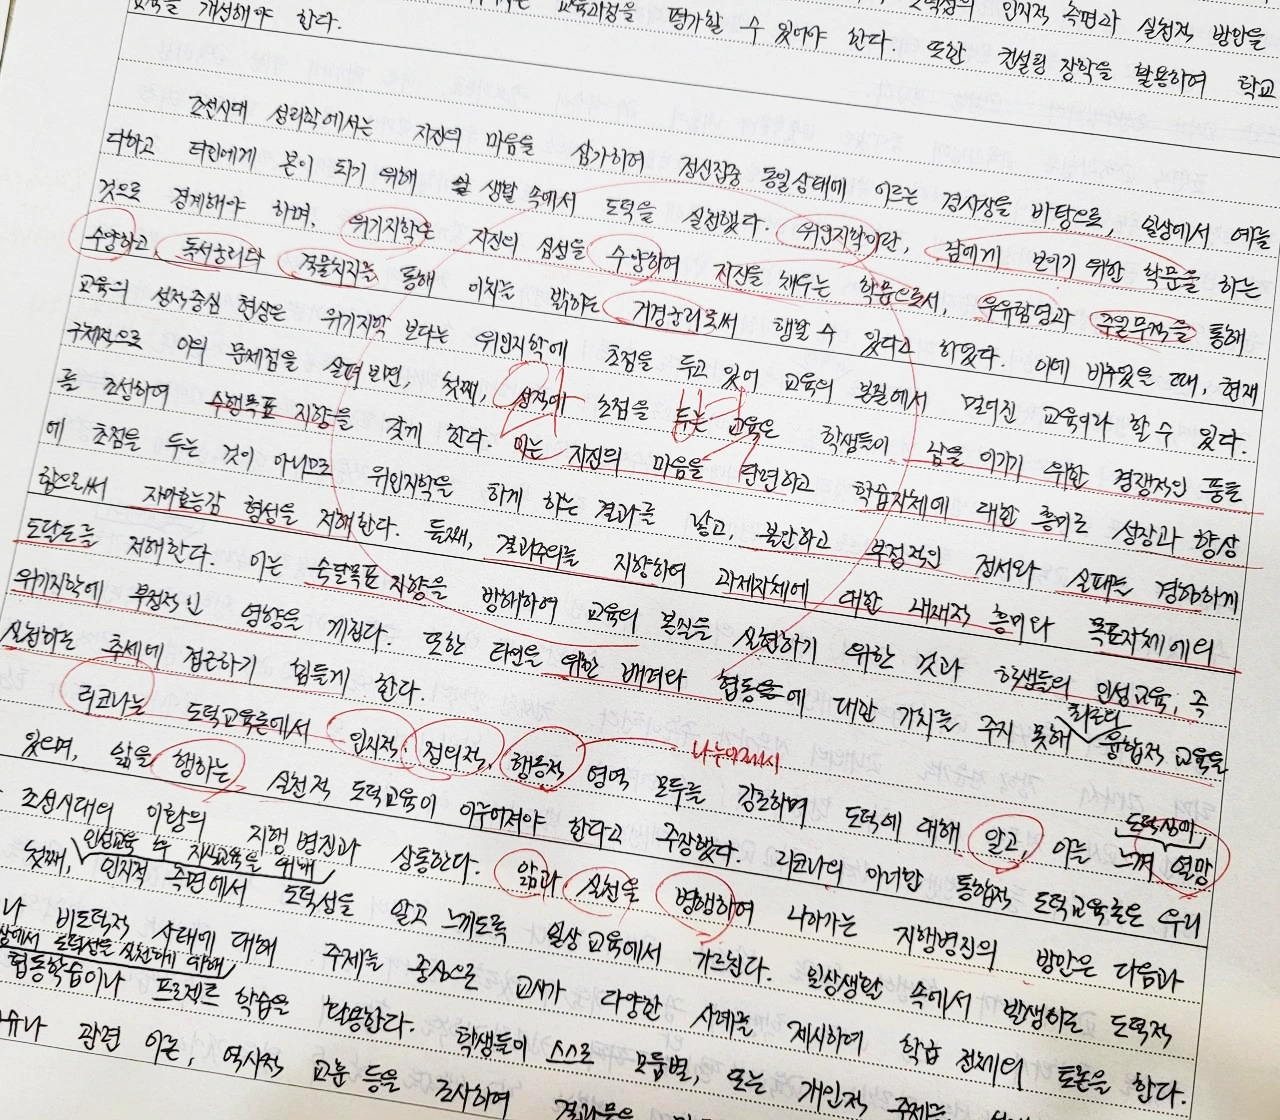 도덕성의 인지적 측면과 실천적 방안을
교육과정을 평가할 수 있어야 한다. 또한 컨설팅 장학을 활용하여 학교
교육을 개선해야 한다.
조선시대 성리학에서는 자신의 마음을 삼가하여 정신집중 통일상태에 이르는 경사상을 바탕으로, 일상에서 예를
다하고 타인에게 본이 되기 위해 생활 속에서 도덕을 실천했다. 위인지학이란, 남에게 보이기 위한 학문을 하는
것으로 경계해야 하며, 위기지학은 자신의 심성을 수양하여 자신을 채우는 학문으로서, 우유함영과 주일무적을 통해
수양하고, 독서궁리나 격물치지를 통해 이치를 밝히는 거경궁리로써 행할 수 있다고 하였다. 이에 비추었을 때, 현재
교육의 성적중심 현상은 위기지학 보다는 위인지학에 초점을 두고 있어 교육의 본질에서 멀어진 교육이라 할 수 있다.
구체적으로 이의 문제점을 살펴보면, 첫째, 성적에 초점을 두는 교육은 학생들이 남을 이기기 위한 경쟁적인 풍토
를 조성하여 수행목표 지향을 갖게 한다. 이는 자신의 마음을 단련하고 학습자체에 대한 흥미로 성장과 향상
에 초점을 두는 것이 아니므로 위인지학을 하게 하는 결과를 낳고, 불안하고 부정적인 정서와 실패를 경험하게
함으로써 자아효능감 형성을 저해한다. 둘째, 결과주의를 지향하여 과제자체에 대한 내재적 흥미나 목표자체에의
도달도를 저해한다. 이는 숙달목표지향을 방해하여 교육의 본질을 실현하기 위한 것과 학생들의 인성교육, 즉
위기지학에 부정적인 영향을 끼친다. 또한 타인을 위한 배려와 협동을에 대한 가치를 주지 못해 최근의 융합적 교육을
실현하는 추세에 접근하기 힘들게 한다.
리코나는 도덕교육론에서 인지적, 정의적, 행동적 영역 모두를 강조하며 도덕에 대해 알고, 이를 느껴 도덕성에 열망
나누어제시
있으며, 앎을 행하는 실천적 도덕교육이 이루어져야 한다고 주장했다. 리코나의 이러한 통합적 도덕교육론은 우리
조선시대의 이황의 지행병진과 상통한다. 앎과 실천을 병행하여 나아가는 지행병진의 방안은 다음과
첫째, 인성교육 및 지식교육을 위해 인지적 측면에서 도덕성을 알고 느끼도록 일상교육에서 가르친다. 일상생활 속에서 발생하는 도덕적
나 비도덕적 사태에 대해 주제를 중심으로 교사가 다양한 사례를 제시하여 학습 전체의 토론을 한다.
상에서 도덕성을 실천하기 위해 협동학습이나 프로젝트 학습을 활용한다. 학생들이 스스로 모둠별, 또는 개인적 주제를
관련 이론, 역사적 교훈 등을 조사하여 결과물을